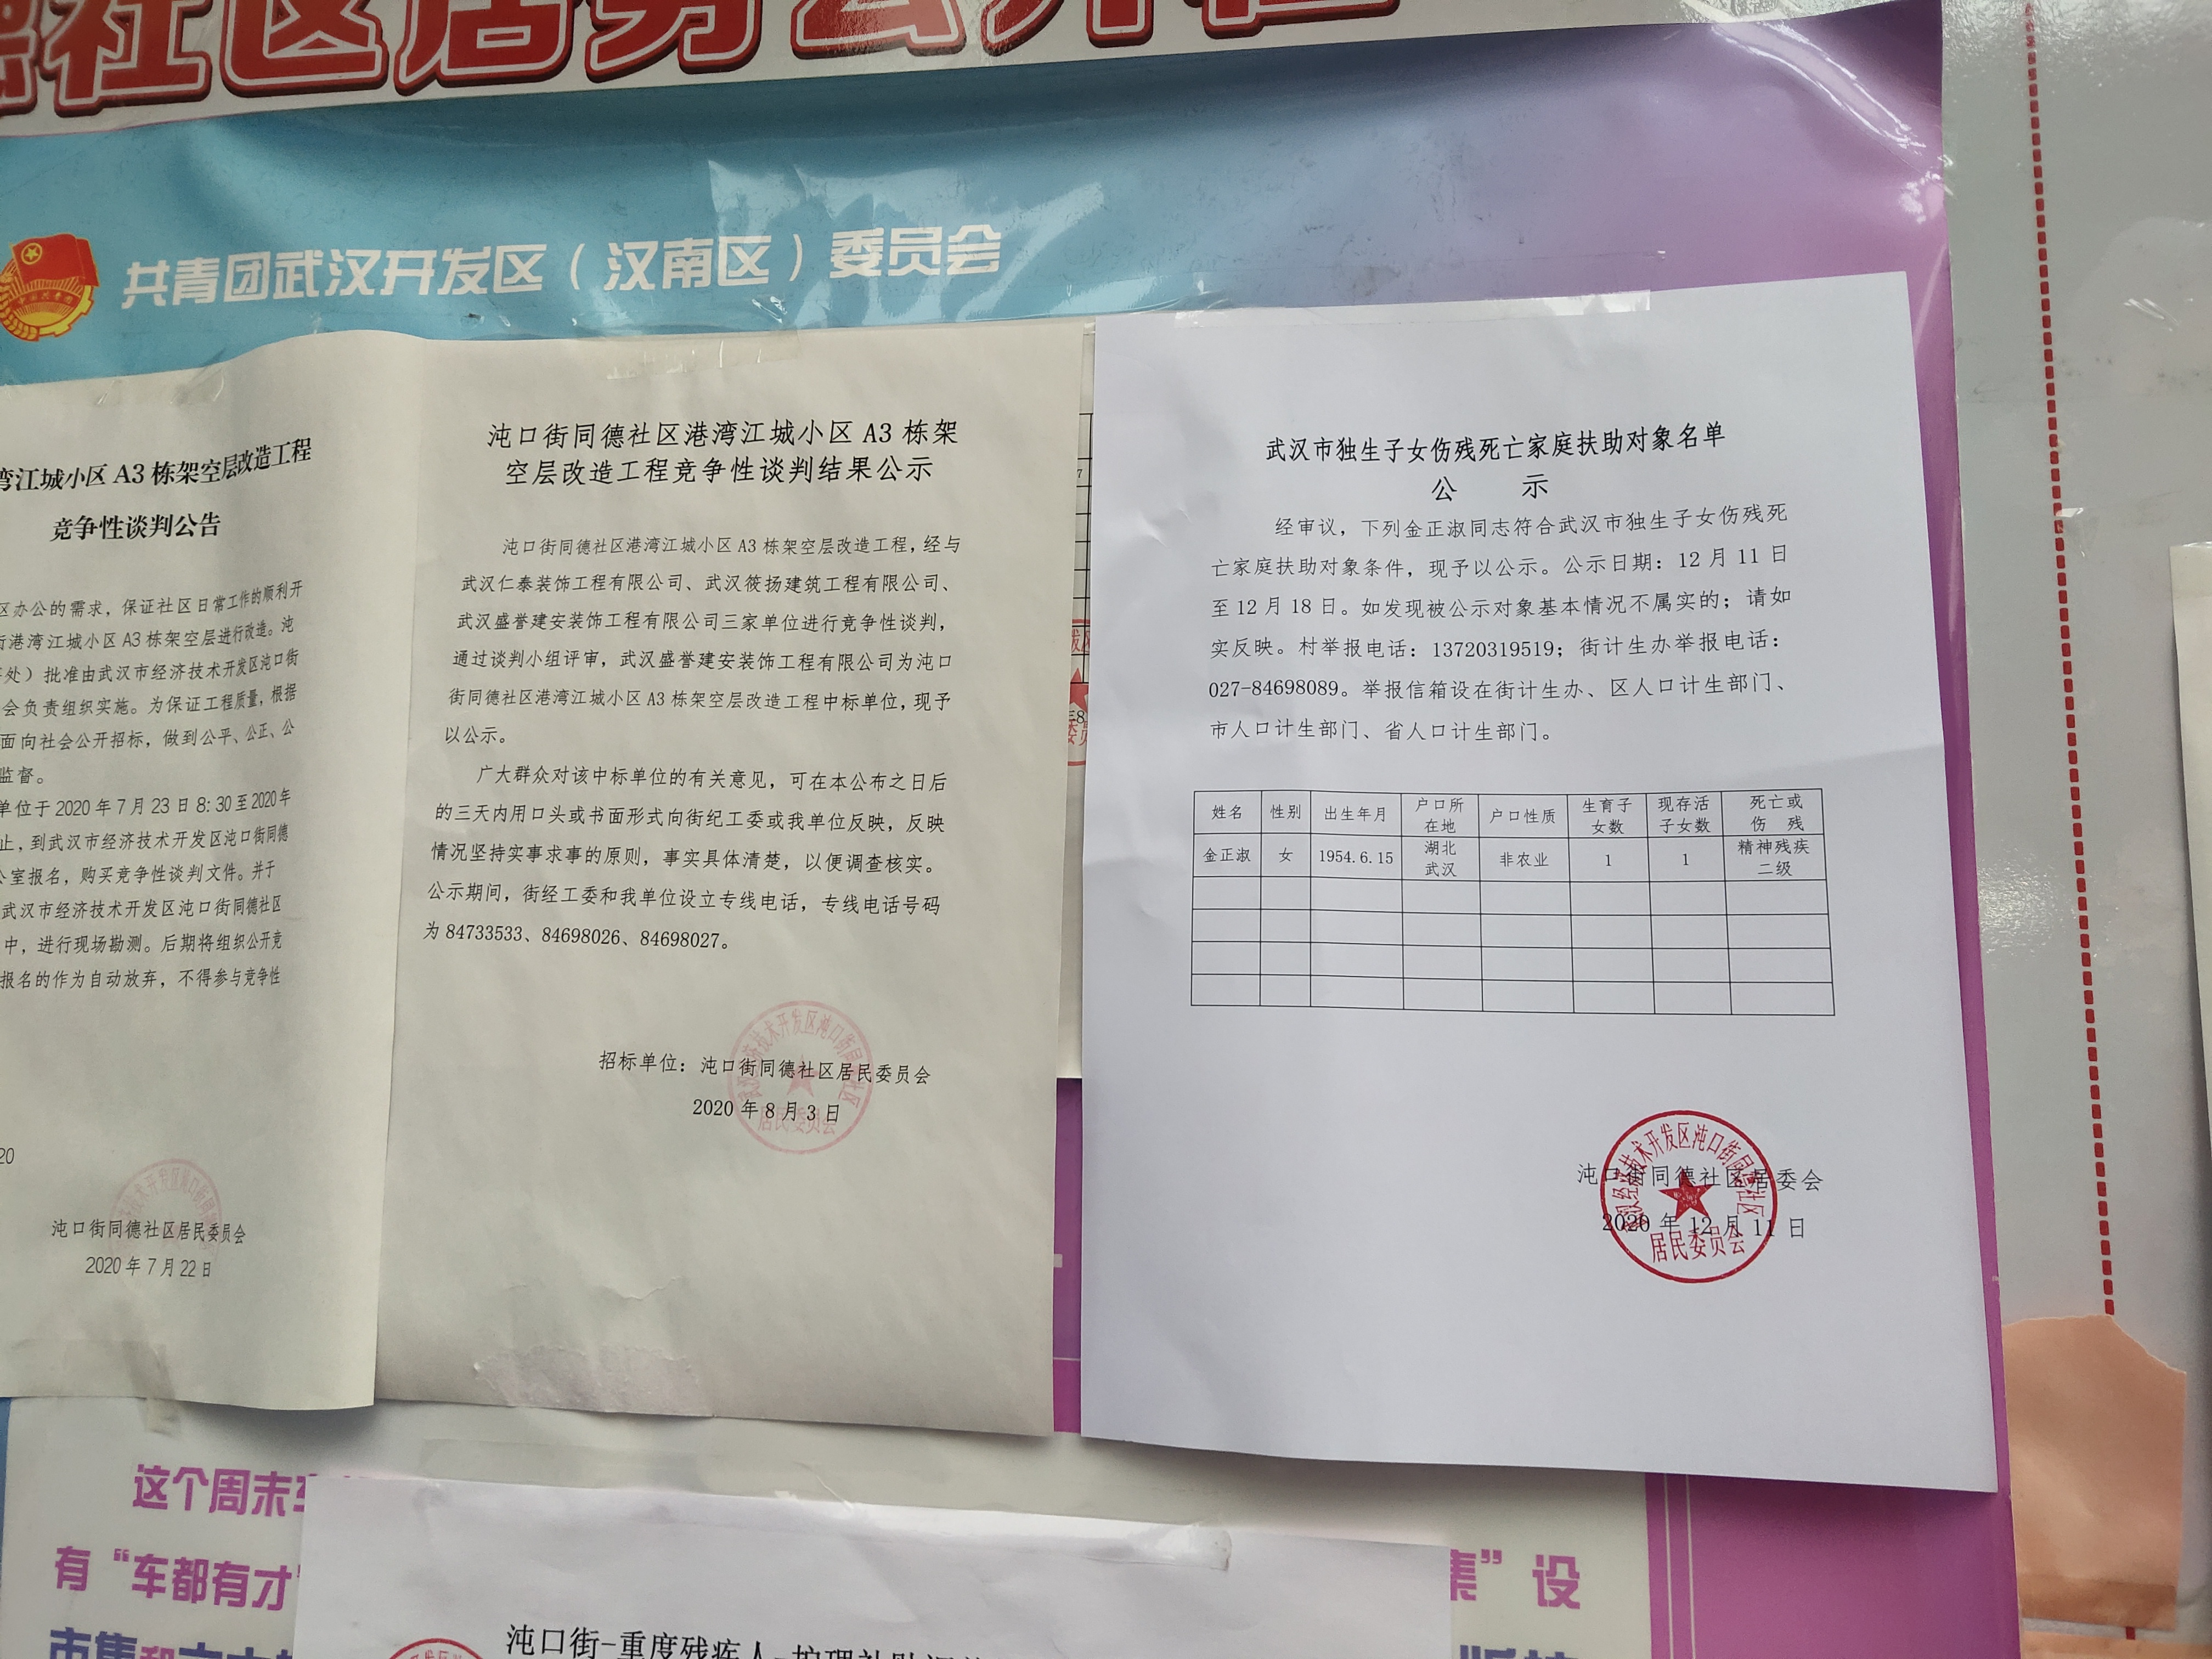 社区居务公开栏
共青团武汉开发区（汉南区）委员会
湾江城小区 A3 栋架空层改造工程
竞争性谈判公告
区办公的需求，保证社区日常工作的顺利开
街港湾江城小区 A3 栋架空层进行改造。沌
处）批准由武汉市经济技术开发区沌口街
会负责组织实施。为保证工程质量，根据
面向社会公开招标，做到公平、公正、公
监督。
单位于 2020 年 7 月 23 日 8:30 至 2020 年
止，到武汉市经济技术开发区沌口街同德
公室报名，购买竞争性谈判文件。并于
武汉市经济技术开发区沌口街同德社区
中，进行现场勘测。后期将组织公开竞
报名的作为自动放弃，不得参与竞争性
20
沌口街同德社区居民委员会
2020 年 7 月 22 日
沌口街同德社区港湾江城小区 A3 栋架
空层改造工程竞争性谈判结果公示
沌口街同德社区港湾江城小区 A3 栋架空层改造工程，经与
武汉仁泰装饰工程有限公司、武汉筱扬建筑工程有限公司、
武汉盛誉建安装饰工程有限公司三家单位进行竞争性谈判，
通过谈判小组评审，武汉盛誉建安装饰工程有限公司为沌口
街同德社区港湾江城小区 A3 栋架空层改造工程中标单位，现予
以公示。
广大群众对该中标单位的有关意见，可在本公布之日后
的三天内用口头或书面形式向街纪工委或我单位反映，反映
情况坚持实事求事的原则，事实具体清楚，以便调查核实。
公示期间，街经工委和我单位设立专线电话，专线电话号码
为 84733533、84698026、84698027。
招标单位：沌口街同德社区居民委员会
2020 年 8 月 3 日
居民委员会
武汉市独生子女伤残死亡家庭扶助对象名单
公 示
经审议，下列金正淑同志符合武汉市独生子女伤残死
亡家庭扶助对象条件，现予以公示。公示日期：12 月 11 日
至 12 月 18 日。如发现被公示对象基本情况不属实的；请如
实反映。村举报电话：13720319519；街计生办举报电话：
027-84698089。举报信箱设在街计生办、区人口计生部门、
市人口计生部门、省人口计生部门。
姓名 性别 出生年月 户口所在地 户口性质 生育子女数 现存活子女数 死亡或伤 残
金正淑 女 1954.6.15 湖北武汉 非农业 1 1 精神残疾二级
沌口街同德社区居委会
2020 年 12 月 11 日
居民委员会
这个周末
有“车都有才
集”设
沌口街-重度残疾人-护理补贴